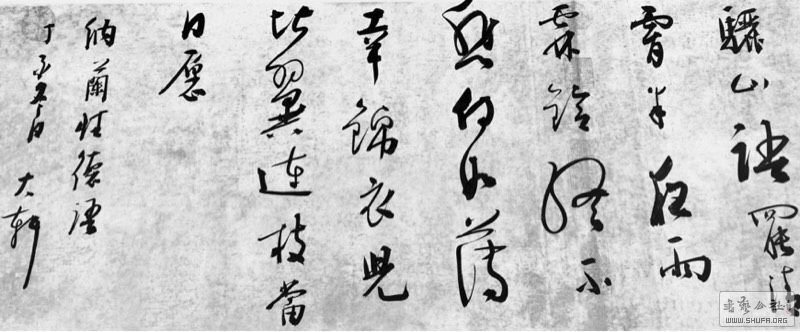 驪山語罷清
宵半夜雨
霖鈴終不
怨何如薄
幸錦衣兒
比翼連枝當
日愿
納蘭性德語
丁亥 日 大軒
書藝公社
WWW.SHUFA.ORG